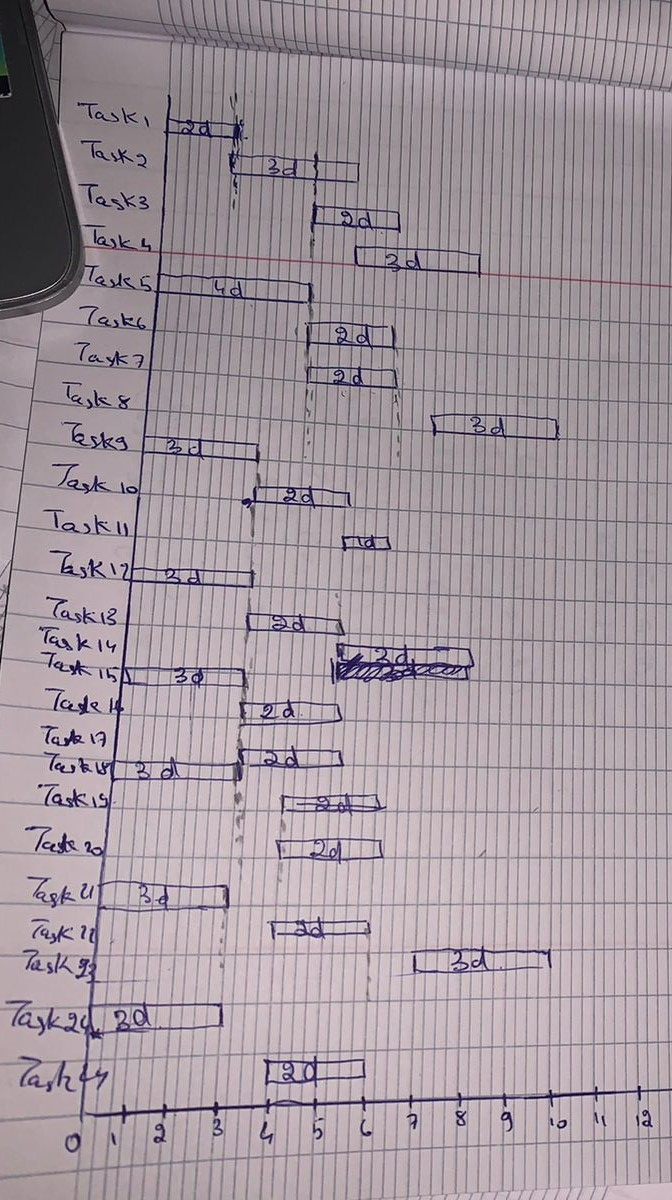 Task1 2d
Task2 3d
Task3 2d
Task 4 3d
Task 5 4d
Task6 2d
Task 7 2d
Task 8 3d
Task9 3d
Task 10 2d
Task 11 1d
Task 12 3d
Task 13 2d
Task 14 3d
Task 15 3d
Task 2d
Task 17 2d
Task 18 3d
Task 19 2d
Task 20 2d
Task 21 3d
Task 22 2d
Task 23 3d
Task 24 3d
Task 2d
0 1 2 3 4 5 6 7 8 9 10 11 12